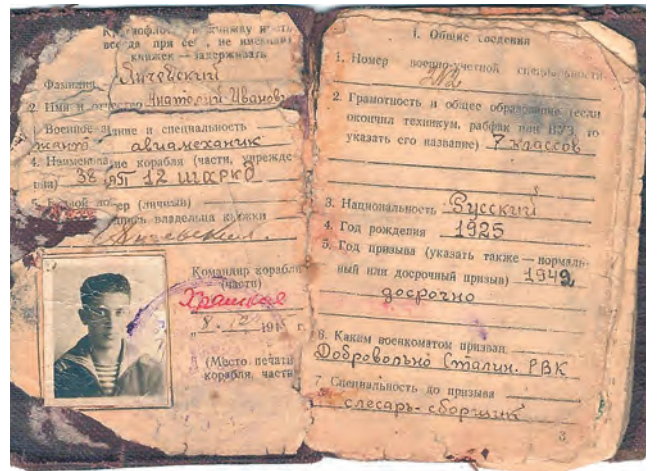 книжку иметь
всегда при себе, не имеющих
книжек — задерживать
Фамилия Янчевский
2. Имя и отчество Анатолий Иванов
Военное звание и специальность
авиамеханик
4. Наименование корабля (части, учрежде-
ния) 38 АП 12 ШКРКО
(личный)
подпись владельца книжки
Командир корабля
(части)
Храмков
„8. 12 194 г.
(Место печати
корабля, части
1. Общие сведения
1. Номер военно-учетной специальности
2. Грамотность и общее образование (если
окончил техникум, рабфак или ВУЗ, то
указать его название) 7 классов
3. Национальность Русский
4. Год рождения 1925
5. Год призыва (указать также — нормаль-
ный или досрочный призыв) 1942
досрочно
6. Каким военкоматом призван
Добровольно Сталин. РВК
7. Специальность до призыва
слесарь-сборщик
3